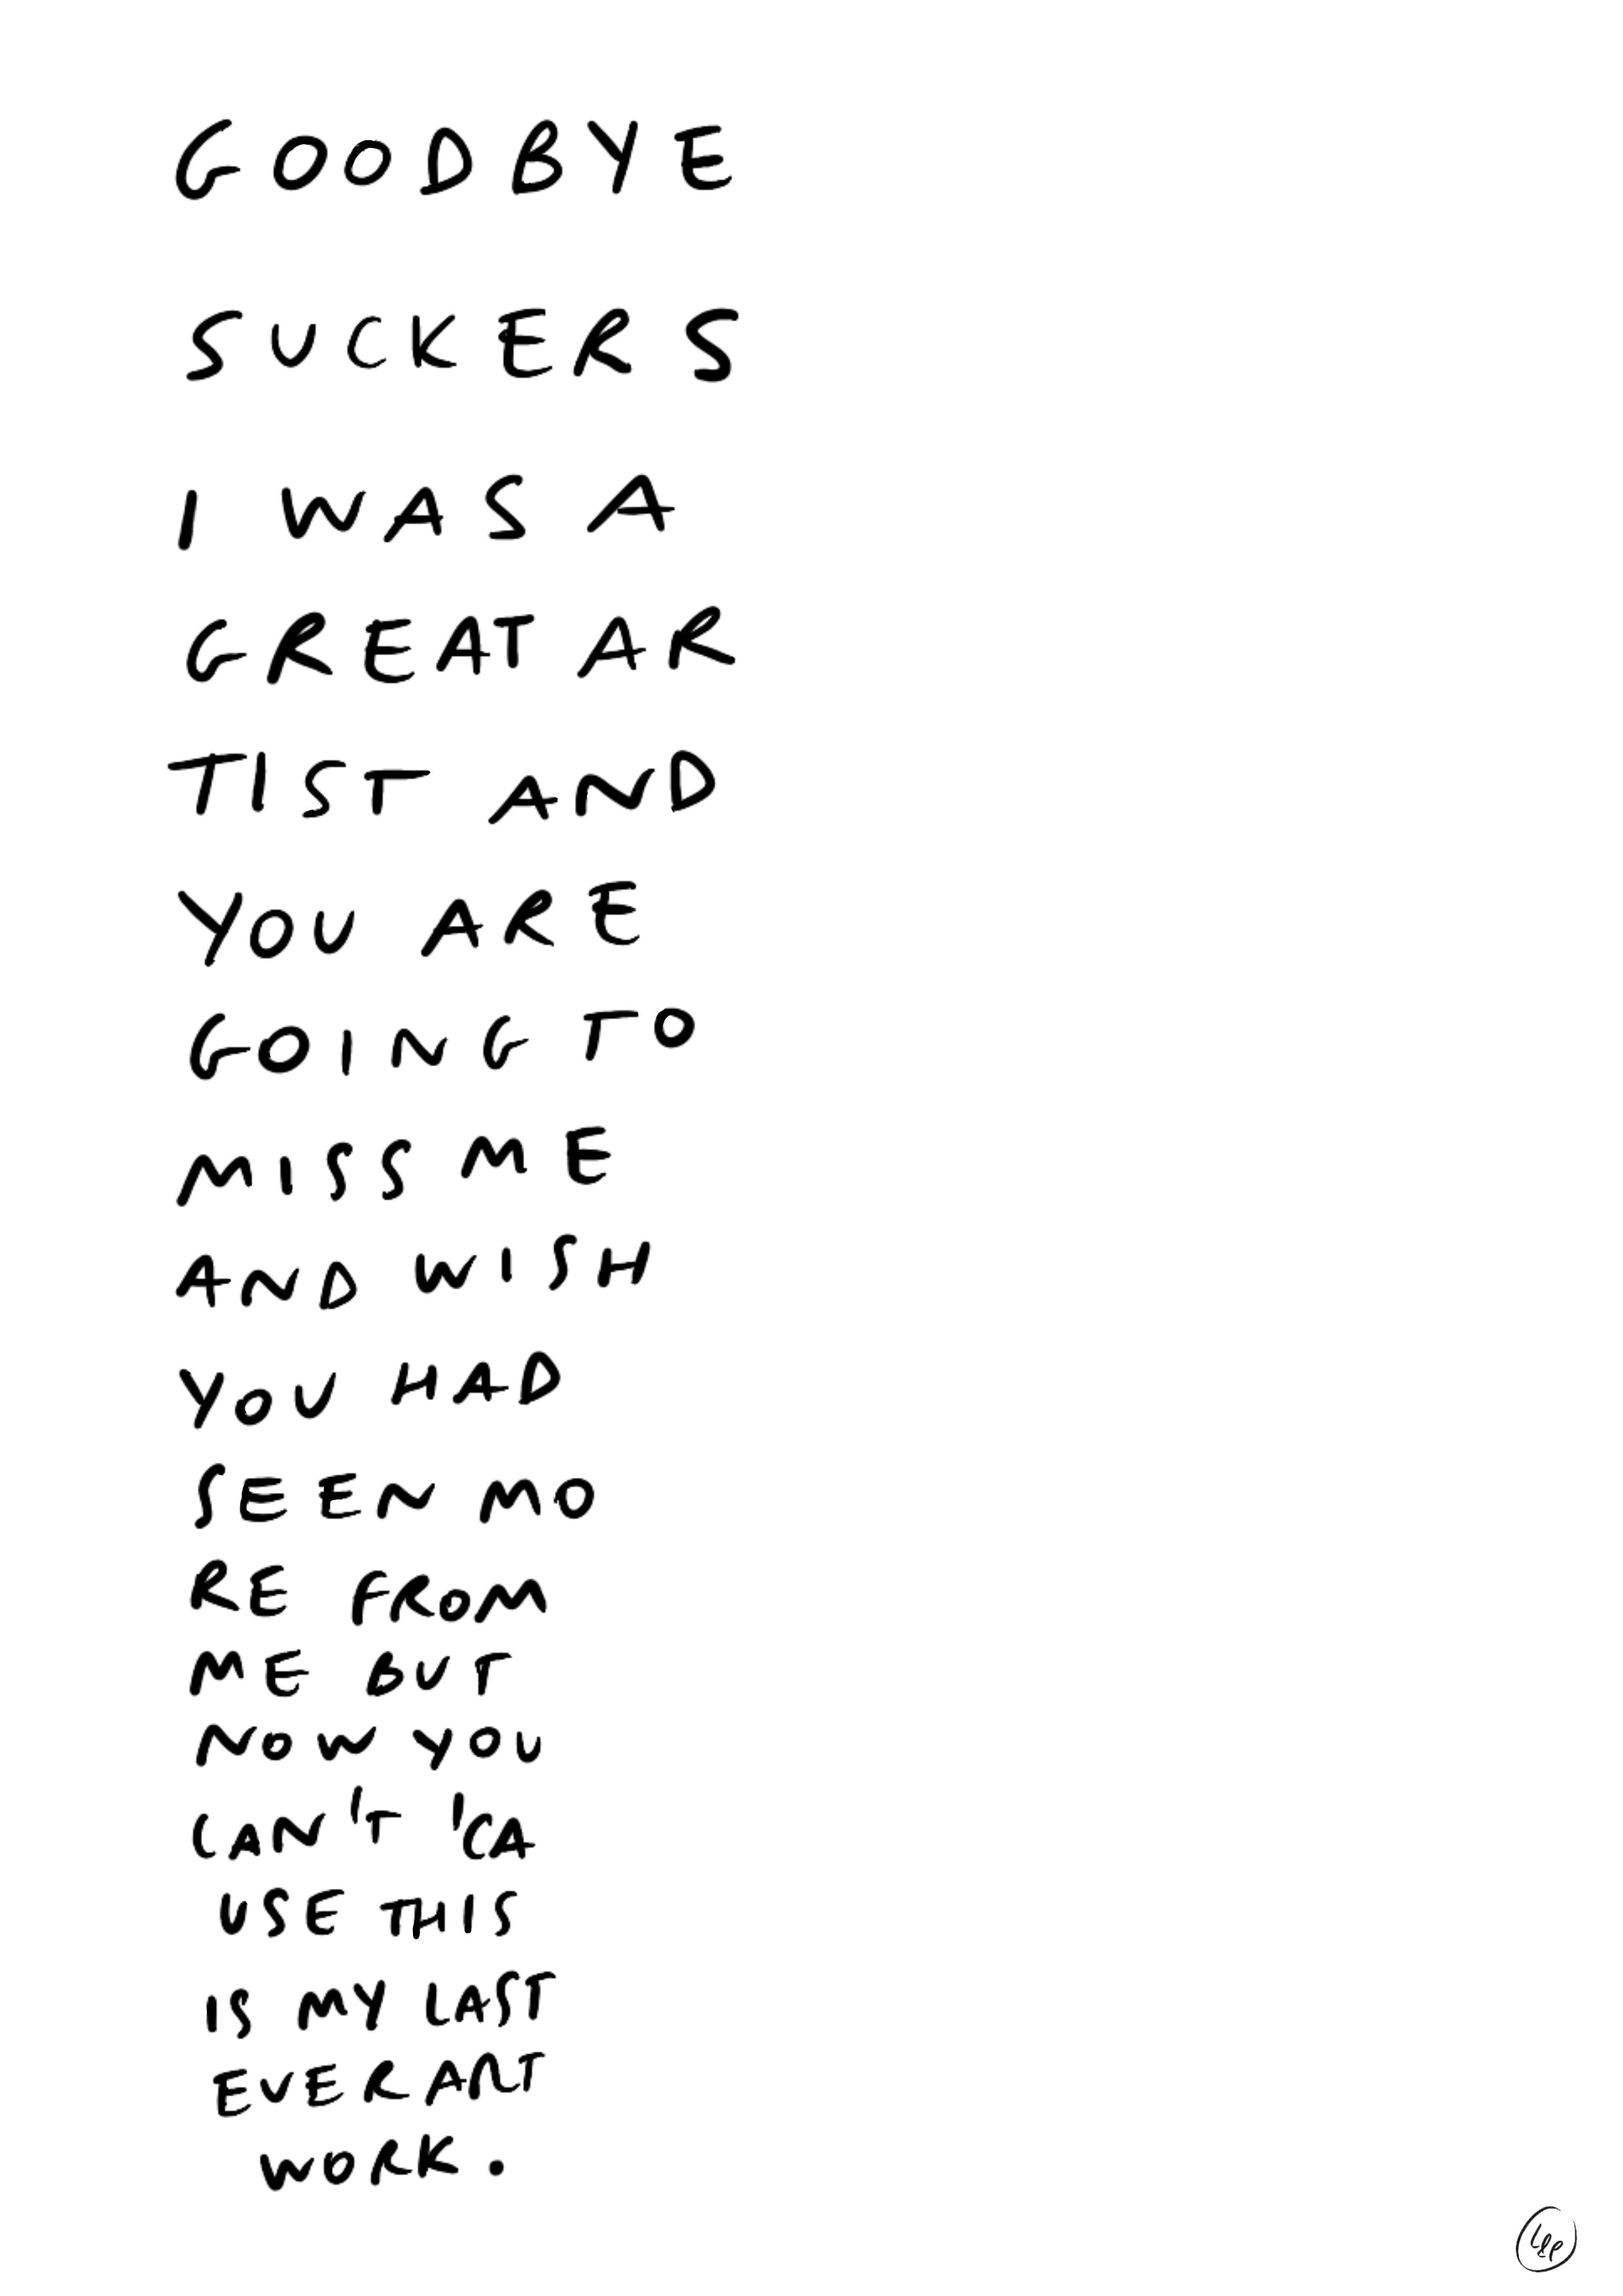 GOODBYE
SUCKERS
I WAS A
GREAT AR
TIST AND
YOU ARE
GOING TO
MISS ME
AND WISH
YOU HAD
SEEN MO
RE FROM
ME BUT
NOW YOU
CAN'T 'CA
USE THIS
IS MY LAST
EVER ART
WORK.